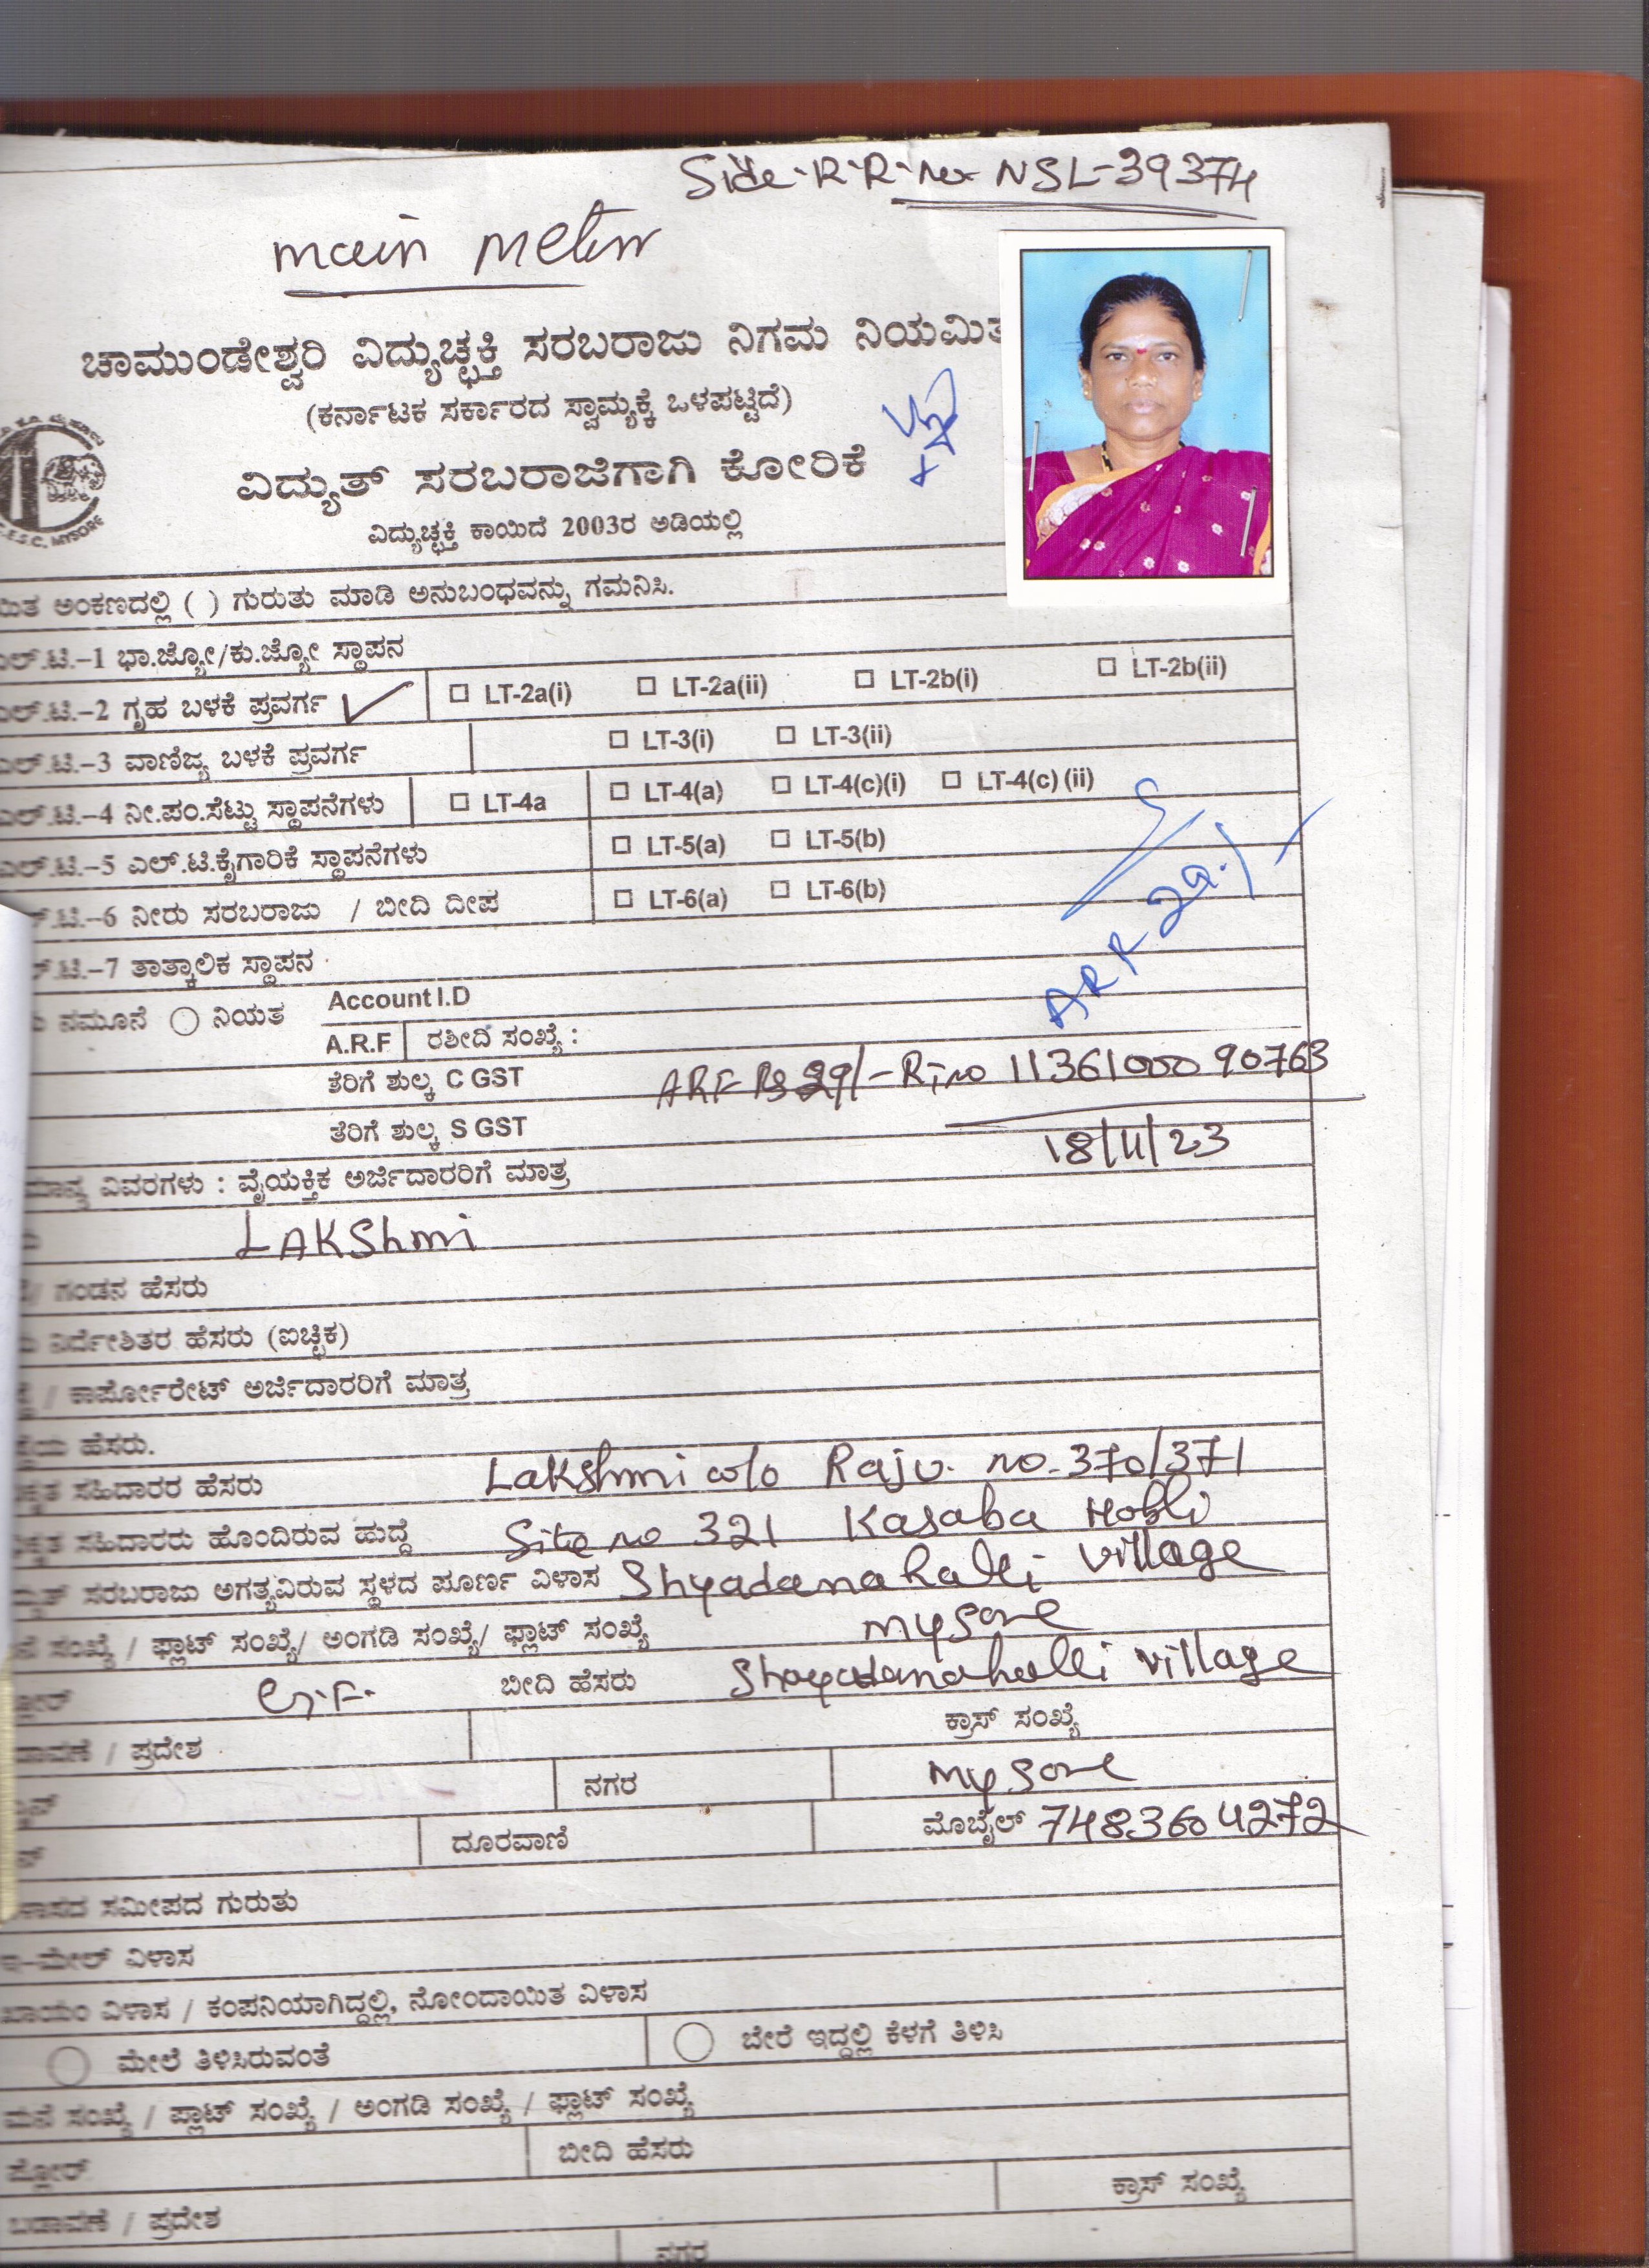 Side R.R. no NSL-39374
main meter
ಚಾಮುಂಡೇಶ್ವರಿ ವಿದ್ಯುಚ್ಛಕ್ತಿ ಸರಬರಾಜು ನಿಗಮ ನಿಯಮಿತ
(ಕರ್ನಾಟಕ ಸರ್ಕಾರದ ಸ್ವಾಮ್ಯಕ್ಕೆ ಒಳಪಟ್ಟಿದೆ)
ವಿದ್ಯುತ್ ಸರಬರಾಜಿಗಾಗಿ ಕೋರಿಕೆ
ವಿದ್ಯುಚ್ಛಕ್ತಿ ಕಾಯಿದೆ 2003ರ ಅಡಿಯಲ್ಲಿ
MYSORE
ಅಂಕಣದಲ್ಲಿ ( ) ಗುರುತು ಮಾಡಿ ಅನುಬಂಧವನ್ನು ಗಮನಿಸಿ.
ಎಲ್.ಟಿ.-1 ಭಾ.ಜ್ಯೋ/ಕು.ಜ್ಯೋ ಸ್ಥಾಪನ
ಎಲ್.ಟಿ.-2 ಗೃಹ ಬಳಕೆ ಪ್ರವರ್ಗ ✓ □ LT-2a(i) □ LT-2a(ii) □ LT-2b(i) □ LT-2b(ii)
ಎಲ್.ಟಿ.-3 ವಾಣಿಜ್ಯ ಬಳಕೆ ಪ್ರವರ್ಗ □ LT-3(i) □ LT-3(ii)
ಎಲ್.ಟಿ.-4 ನೀ.ಪಂ.ಸೆಟ್ಟು ಸ್ಥಾಪನೆಗಳು □ LT-4a □ LT-4(a) □ LT-4(c)(i) □ LT-4(c) (ii)
ಎಲ್.ಟಿ.-5 ಎಲ್.ಟಿ.ಕೈಗಾರಿಕೆ ಸ್ಥಾಪನೆಗಳು □ LT-5(a) □ LT-5(b)
ಟಿ.-6 ನೀರು ಸರಬರಾಜು / ಬೀದಿ ದೀಪ □ LT-6(a) □ LT-6(b)
ಟಿ.-7 ತಾತ್ಕಾಲಿಕ ಸ್ಥಾಪನ
ARR 29/-
ನಮೂನೆ ನಿಯತ Account I.D
A.R.F ರಶೀದಿ ಸಂಖ್ಯೆ :
ತೆರಿಗೆ ಶುಲ್ಕ C GST ARF Rs 29/- R no 11361000090763
ತೆರಿಗೆ ಶುಲ್ಕ S GST 18/11/23
ವಿವರಗಳು : ವೈಯಕ್ತಿಕ ಅರ್ಜಿದಾರರಿಗೆ ಮಾತ್ರ
LAKShmi
/ ಗಂಡನ ಹೆಸರು
ನಿರ್ದೇಶಿತರ ಹೆಸರು (ಐಚ್ಛಿಕ)
/ ಕಾರ್ಪೋರೇಟ್ ಅರ್ಜಿದಾರರಿಗೆ ಮಾತ್ರ
ಹೆಸರು.
ಸಹಿದಾರರ ಹೆಸರು Lakshmi w/o Raju. no. 370/371
ಸಹಿದಾರರು ಹೊಂದಿರುವ ಹುದ್ದೆ Site no 321 Kasaba Hobli
ಸರಬರಾಜು ಅಗತ್ಯವಿರುವ ಸ್ಥಳದ ಪೂರ್ಣ ವಿಳಾಸ Shyadanahalli village
ಸಂಖ್ಯೆ / ಫ್ಲಾಟ್ ಸಂಖ್ಯೆ/ ಅಂಗಡಿ ಸಂಖ್ಯೆ/ ಫ್ಲಾಟ್ ಸಂಖ್ಯೆ mysore
G.F. ಬೀದಿ ಹೆಸರು Shayadanahalli village
/ ಪ್ರದೇಶ ಕ್ರಾಸ್ ಸಂಖ್ಯೆ
ನಗರ mysore
ದೂರವಾಣಿ ಮೊಬೈಲ್ 7483604272
ಸಮೀಪದ ಗುರುತು
ಇ-ಮೇಲ್ ವಿಳಾಸ
ಖಾಯಂ ವಿಳಾಸ / ಕಂಪನಿಯಾಗಿದ್ದಲ್ಲಿ, ನೋಂದಾಯಿತ ವಿಳಾಸ
ಮೇಲೆ ತಿಳಿಸಿರುವಂತೆ ಬೇರೆ ಇದ್ದಲ್ಲಿ ಕೆಳಗೆ ತಿಳಿಸಿ
ಮನೆ ಸಂಖ್ಯೆ / ಪ್ಲಾಟ್ ಸಂಖ್ಯೆ / ಅಂಗಡಿ ಸಂಖ್ಯೆ / ಫ್ಲಾಟ್ ಸಂಖ್ಯೆ
ಫ್ಲೋರ್ ಬೀದಿ ಹೆಸರು
ಬಡಾವಣೆ / ಪ್ರದೇಶ ಕ್ರಾಸ್ ಸಂಖ್ಯೆ
ನಗರ